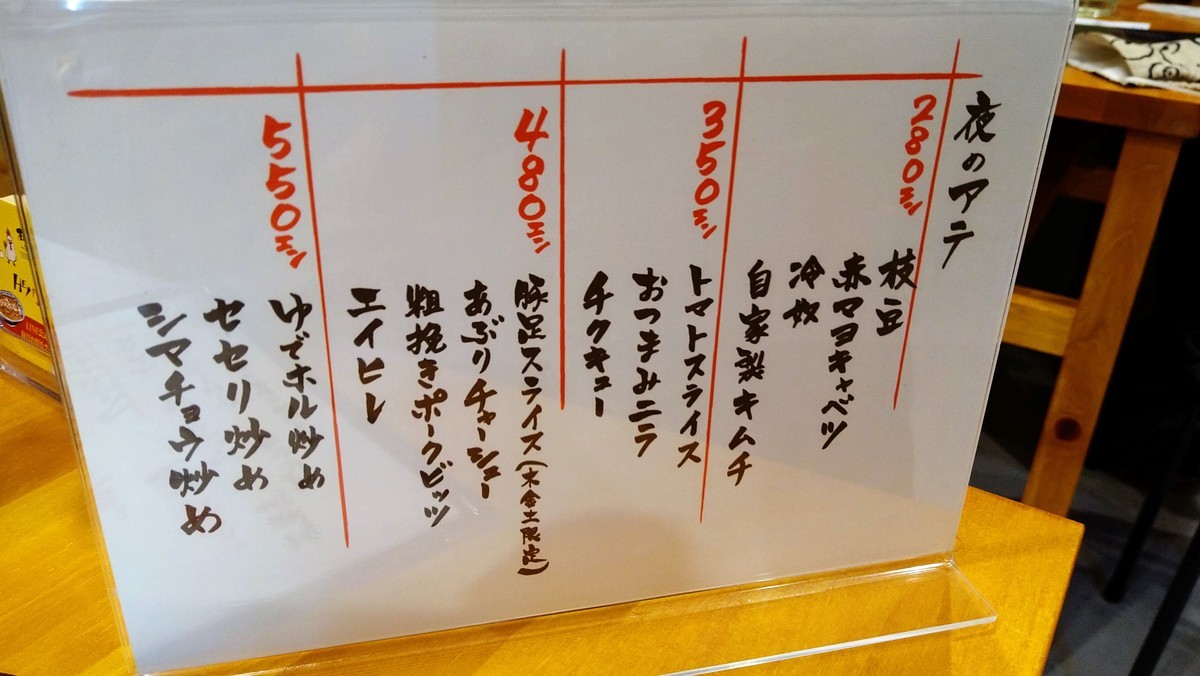 夜のアテ
280エン
枝豆
赤マヨキャベツ
冷奴
自家製キムチ
350エン
トマトスライス
おつまみニラ
チクキュー
480エン
豚足スライス(木金土限定)
あぶりチャーシュー
粗挽きポークビッツ
エイヒレ
550エン
ゆでホル炒め
セセリ炒め
シマチョウ炒め